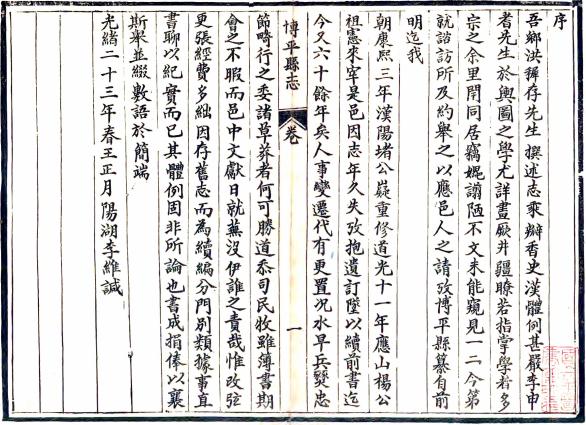 序
吾鄉洪稺存先生撰述志乘辦香史漢體例甚嚴李申
耆先生於輿圖之學尤詳晝厥井疆瞭若指掌學者多
宗之余里閈同居竊媿謭陋不文未能窺見一二今第
就諮訪所及約舉之以應邑人之請攷博平縣纂自前
明迄我
朝康熙三年漢陽堵公嶷重修道光十一年應山楊公
祖憲來宰是邑因志年久失攷抱遺訂墜以續前書迄
今又六十餘年矣人事變遷代有更置況水旱兵燹忠
博平縣志
卷
一
節畸行之委諸草莽者何可勝道忝司民牧雖簿書期
會之不暇而邑中文獻日就蕪沒伊誰之責哉惟改弦
更張經費多絀因存舊志而為續編分門別類據事直
書聊以紀實而已其體例固非所論也書成捐俸以襄
斯舉並綴數語於簡端
光緒二十三年春王正月陽湖李維諴